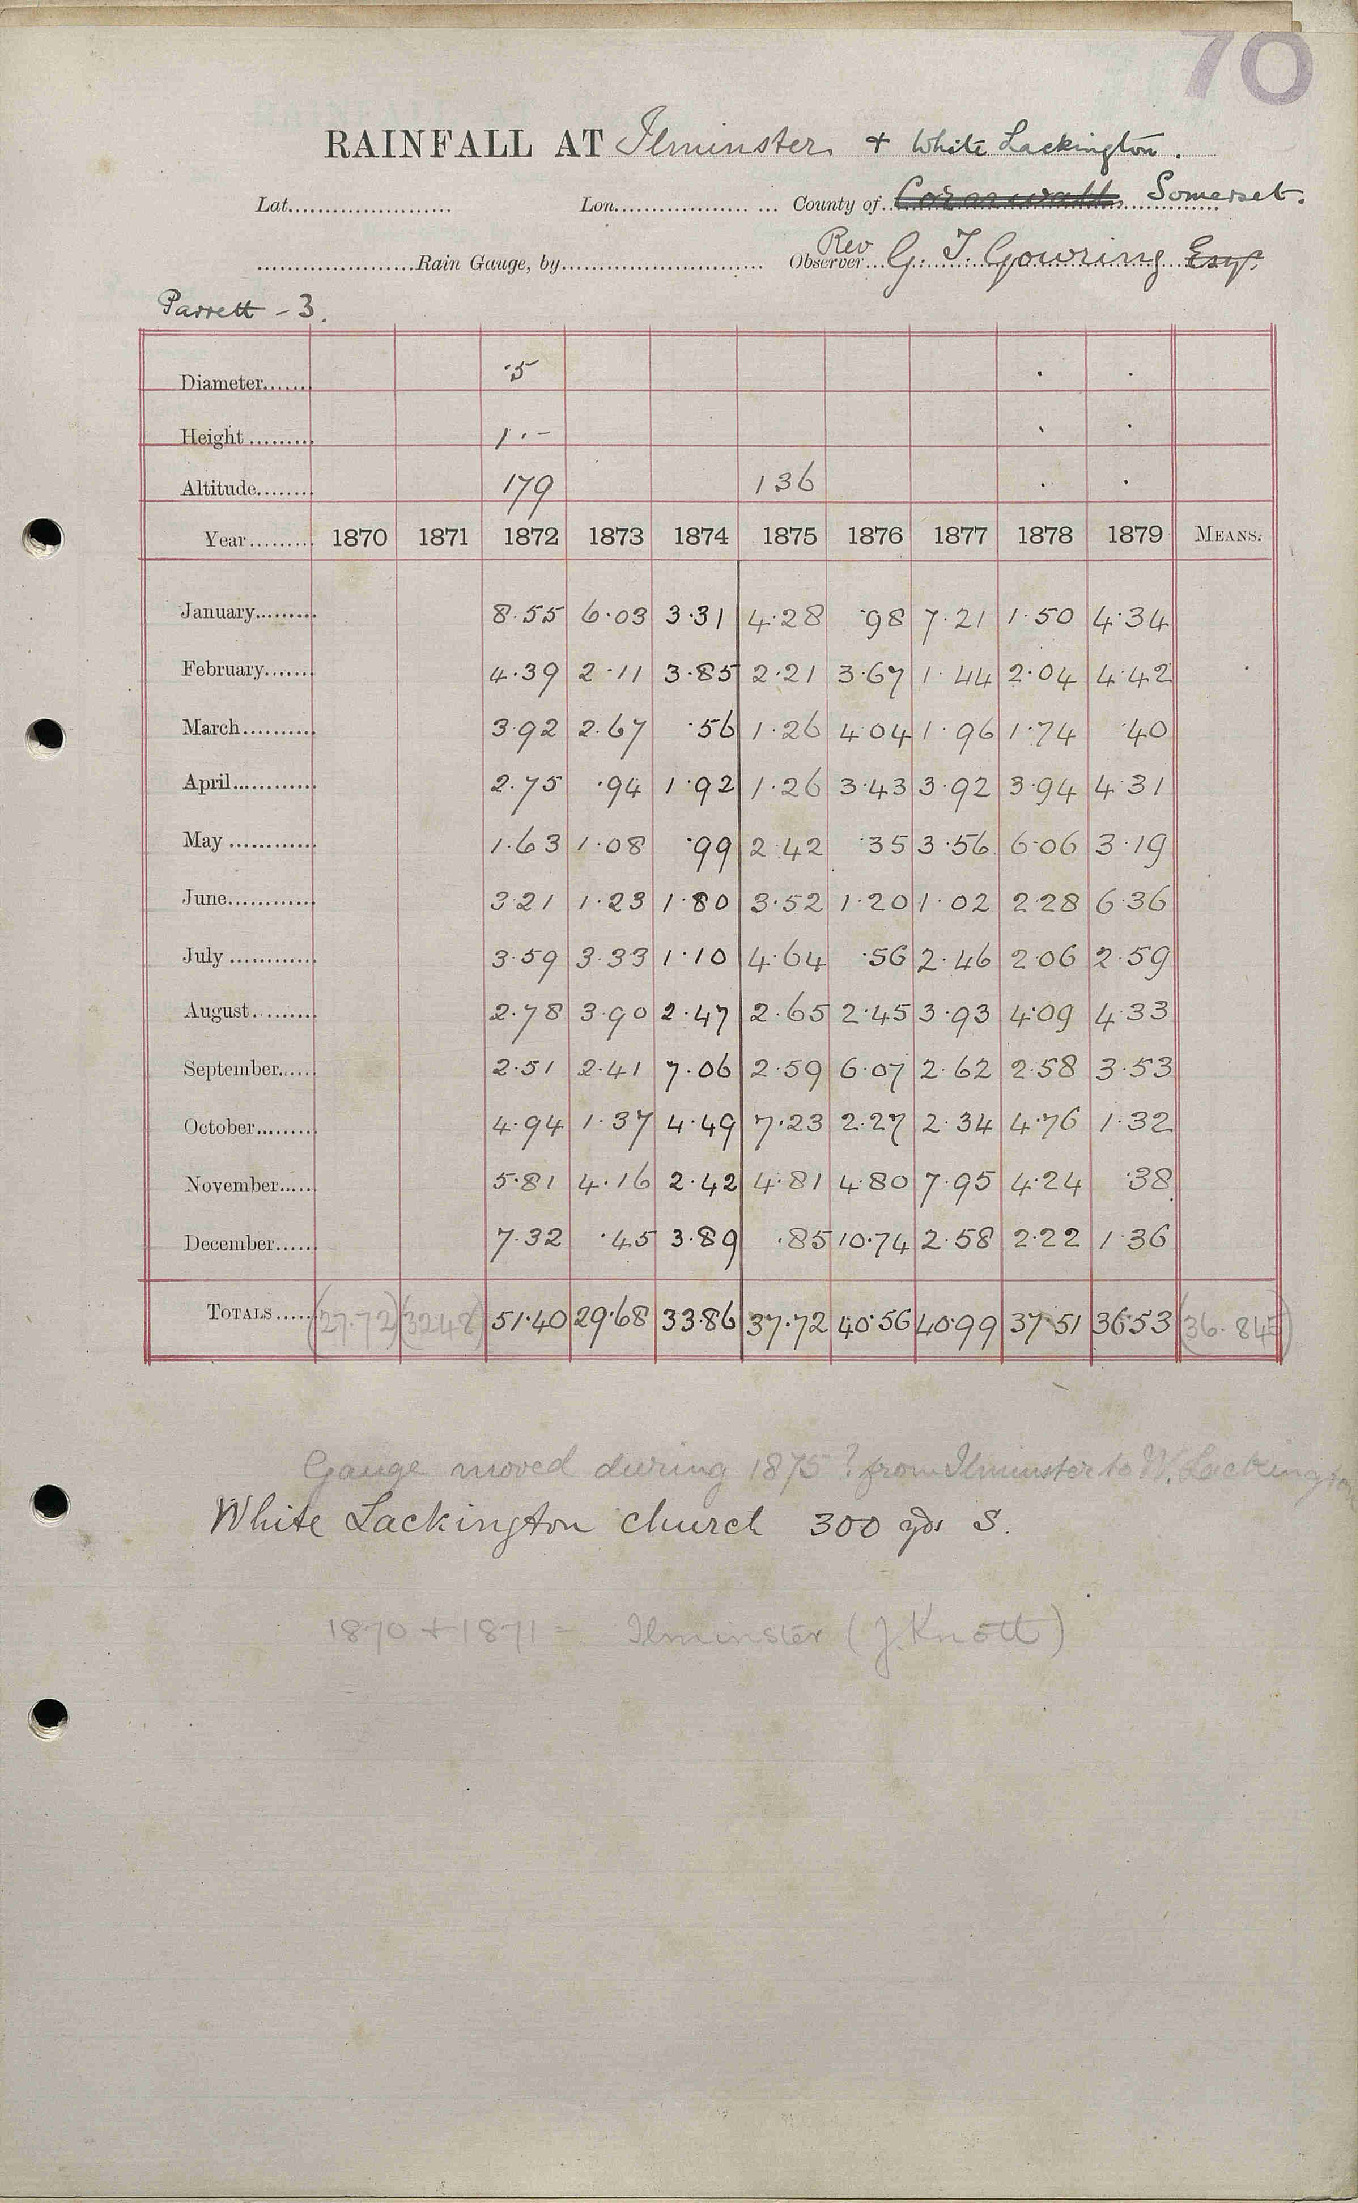 70
RAINFALL AT Ilminster + White Lackington.
Lat. Lon. County of Cornwall Somerset.
Rain Gauge, by Rev Observer G. T. Gowring Esq.
Parrett - 3.
Diameter ·5
Height 1·-
Altitude 179 136
Year 1870 1871 1872 1873 1874 1875 1876 1877 1878 1879 MEANS.
January 8·55 6·03 3·31 4·28 ·98 7·21 1·50 4·34
February 4·39 2·11 3·85 2·21 3·67 1·44 2·04 4·42
March 3·92 2·67 ·56 1·26 4·04 1·96 1·74 ·40
April 2·75 ·94 1·92 1·26 3·43 3·92 3·94 4·31
May 1·63 1·08 ·99 2·42 ·35 3·56 6·06 3·19
June 3·21 1·23 1·80 3·52 1·20 1·02 2·28 6·36
July 3·59 3·33 1·10 4·64 ·56 2·46 2·06 2·59
August 2·78 3·90 2·47 2·65 2·45 3·93 4·09 4·33
September 2·51 2·41 7·06 2·59 6·07 2·62 2·58 3·53
October 4·94 1·37 4·49 7·23 2·27 2·34 4·76 1·32
November 5·81 4·16 2·42 4·81 4·80 7·95 4·24 ·38
December 7·32 ·45 3·89 ·85 10·74 2·58 2·22 1·36
TOTALS (27·72) (32·48) 51·40 29·68 33·86 37·72 40·56 40·99 37·51 36·53 (36·845)
Gauge moved during 1875? from Ilminster to W. Lackington
White Lackington church 300 yds S.
1870 + 1871 - Ilminster (J. Knott)